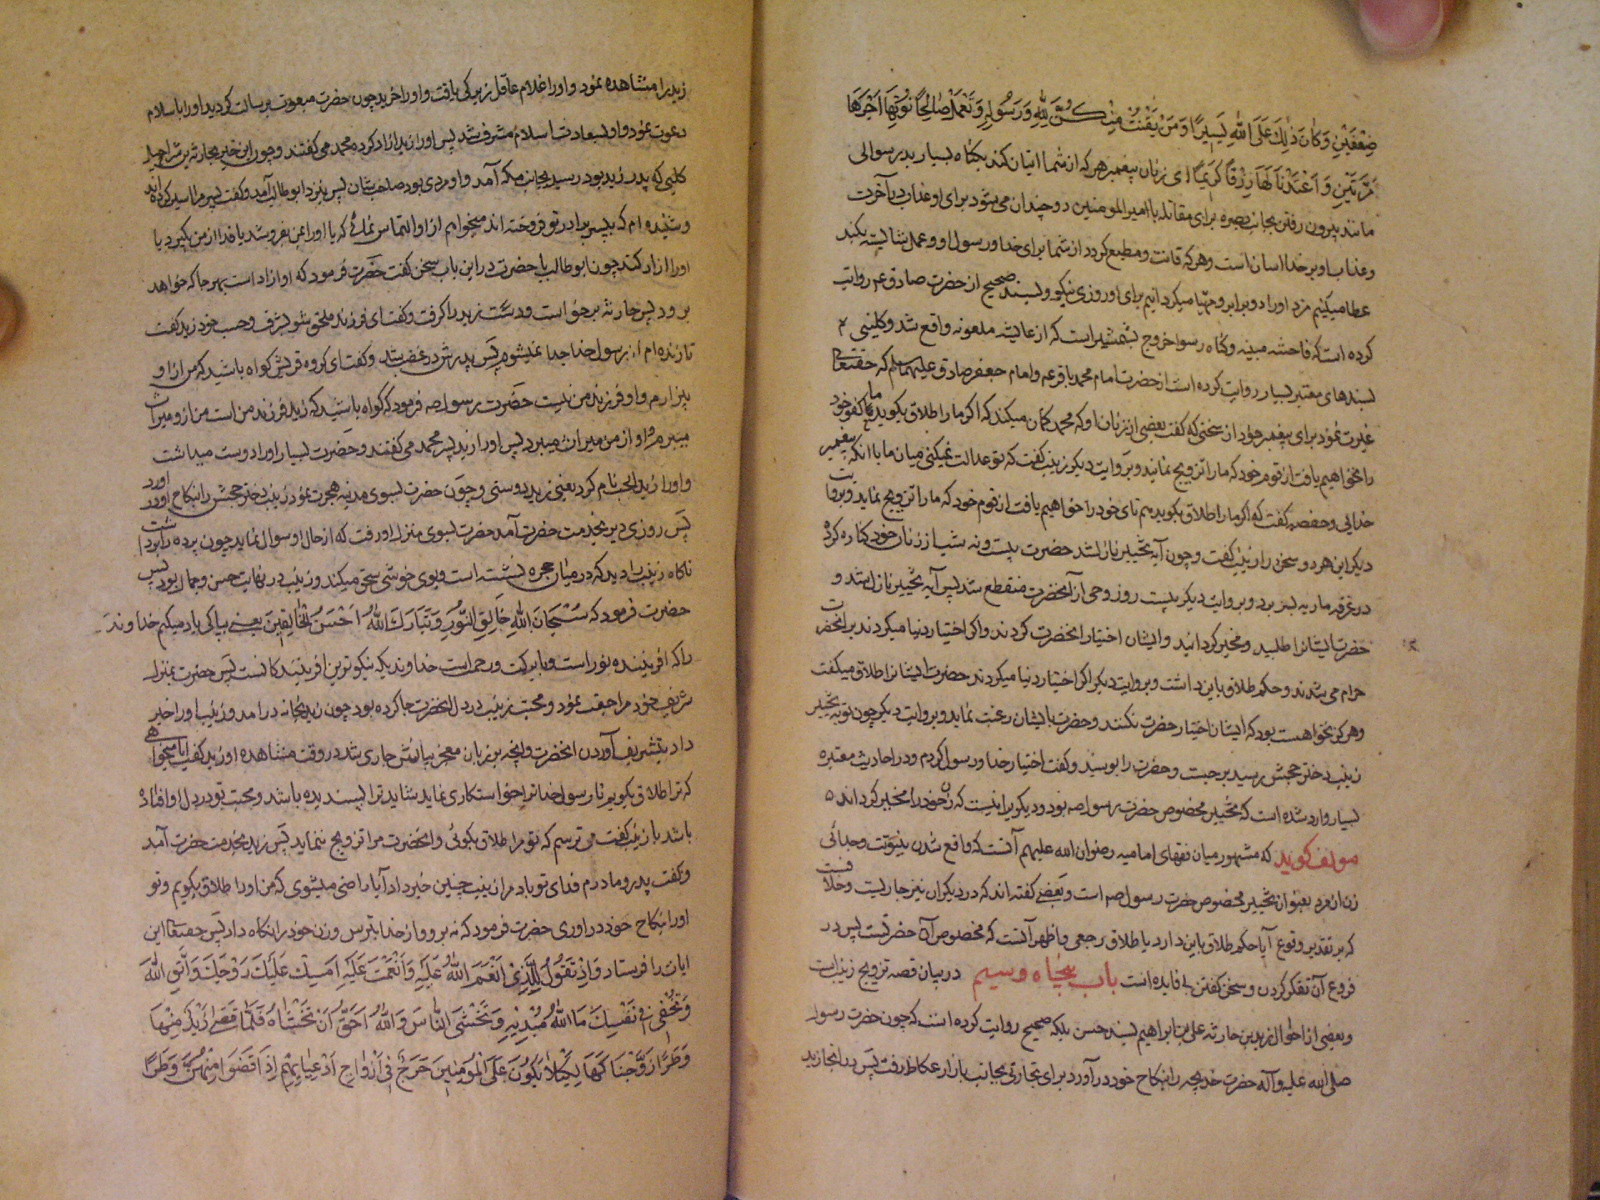 ضِعْفَیْنِ وَکَانَ ذٰلِکَ عَلَی اللّٰهِ یَسِیرًا وَمَنْ یَقْنُتْ مِنْکُنَّ لِلّٰهِ وَرَسُولِهِ وَتَعْمَلْ صَالِحًا نُؤْتِهَا اَجْرَهَا
مَرَّتَیْنِ وَاَعْتَدْنَا لَهَا رِزْقًا کَرِیمًا ای زنان پیغمبر هر که از شما اتیان کند بکناه بسیار بد رسوائی
مانند بیرون رفتن بجانب بصره برای مقاتله با امیر المومنین دو چندان می شود برای او عذاب در آخرت
و عذاب او بر خدا اسان است و هر که قانت و مطیع کردد از شما برای خدا و رسول او و عمل شایسته بکند
عطا میکنیم مزد او را دو برابر و مهیا میکردانیم برای او روزی نیکو و بسند صحیح از حضرت صادق ع روایت
کرده است که فاحشه مبینه و کناه رسوا خروج بشمشیر است که از عایشه ملعونه واقع شد و کلینی
بسندهای معتبر بسیار روایت کرده است از حضرت امام محمد باقر ع و امام جعفر صادق علیهما سلم که حقتعالی
غیرت نمود برای پیغمبر خود از سخنی که کفت بعضی از زنان او که محمد کمان میکند که اکر ما را طلاق بکوید ما کفو خود
را نخواهیم یافت از قوم خود که ما را تزویج نمایند و بروایت دیکر زینب کفت که تو عدالت نمیکنی میان ما با انکه پیغمبر
خدایی و حفصه کفت که اکر ما را طلاق بکوید همتای خود را خواهیم یافت از قوم خود که ما را تزویج نماید و بروایت
دیکر این هر دو سخن را زینب کفت و چون آیه تخییر نازل شد حضرت بیست و نه شب از زنان خود کناره کرد
در غرفه ماریه بسر برد و بروایت دیکر بیست روز وحی از آنحضرت منقطع شد پس آیه تخییر نازل شد و
حضرت ایشانرا طلبید و مخیر کردانید و ایشان اختیار انحضرت کردند و اکر اختیار دنیا میکردند بر انحضرت
حرام می شدند و حکم طلاق باین داشت و بروایت دیکر اکر اختیار دنیا میکردند حضرت ایشانرا طلاق میکفت
و هرکز نخواهست بود که ایشان اختیار حضرت نکنند و حضرت بایشان رغبت نماید و بروایت دیکر چون نوبه تخییر
زینب دختر جحش رسید برجست و حضرت را بوسید و کفت اختیار خدا و رسول کردم و در احادیث معتبره
بسیار وارد شده است که تخییر مخصوص حضرت رسول ص بود و دیکری را نیست که زن خود را مخیر کرداند
مولف کوید که مشهور میان فقهای امامیه رضوان الله علیهم آنست که واقع شدن بینونت و جدائی
زن از مرد بعنوان تخییر مخصوص حضرت رسول ص است و بعضی کفته اند که در دیکران نیز جاریست و خلافست
که بر تقدیر وقوع آیا حکم طلاق باین دارد یا طلاق رجعی و اظهر آنست که مخصوص آن حضرتست پس در
فروع آن تفکر کردن و سخن کفتن بی فایده است باب پنجاه و سیم در بیان قصه تزویج زینب است
و بعضی از احوال زید بن حارثه علی بن ابراهیم بسند حسن بلکه صحیح روایت کرده است که چون حضرت رسول
صلی الله علیه و آله حضرت خدیجه را بنکاح خود در آورد برای تجارتی بجانب بازار عکاظ رفت پس در انجا زید
زید را مشاهده نمود و او را غلام عاقل زیرکی یافت و او را خرید چون حضرت مبعوث برسالت کردید او را باسلام
دعوت نمود و او بسعادت اسلام مشرف شد پس او را زید ازاد کرده محمد می کفتند و چون این خبر بحارثه بن شراحیل
کلبی که پدر زید بود رسید بجانب مکه آمد و او مردی بود صاحب شان پس بنزد ابو طالب آمد و کفت پسر مرا اسیر کرده اند
و شنیده ام که بپسر برادر تو فروخته اند میخواهم از او التماس نمائی که یا او را بمن بفروشد یا فدا از من بکیرد یا
او را ازاد کند چون ابو طالب با حضرت در این باب سخن کفت حضرت فرمود که او ازاد است بهر جا که خواهد
برود پس حارثه برخواست و دست زید را کرفت و کفت ای فرزند ملحق شو بشرف و حسب خود زید کفت
تا زنده ام از رسول خدا جدا نمیشوم پس پدرش در غضب شد و کفت ای کروه قریش کواه باشید که من از او
بیزارم و او فرزند من نیست حضرت رسول ص فرمود که کواه باشید که زید فرزند من است من از او میراث
میبرم و او از من میراث میبرد پس او را زید پسر محمد می کفتند و حضرت بسیار او را دوست میداشت
و او را زید الحب نام کرد یعنی زید دوستی و چون حضرت بسوی مدینه هجرت نمود زینب دختر جحش را بنکاح او در آورد
پس روزی دیر بخدمت حضرت آمد حضرت بسوی منزل او رفت که از حال او سوال نماید چون پرده را برداشت
ناکاه زینب را دید که در میان حجره نشسته است و بوی خوشی سحق میکند و زینب در نهایت حسن و جمال بود پس
حضرت فرمود که سُبْحَانَ اللّٰهِ خَالِقِ النُّورِ وَتَبَارَکَ اللّٰهُ اَحْسَنُ الْخَالِقِینَ یعنی بپاکی یاد میکنم خداوند
را که افریننده نور است و با برکت و رحمت است خداوندیکه نیکوترین افرینندکانست پس حضرت بمنزل
شریف خود مراجعت نمود و محبت زینب در دل انحضرت جا کرده بود چون زید بخانه در امد و زینب او را خبر
داد بتشریف آوردن انحضرت و انچه بر زبان معجز بیانش جاری شد در وقت مشاهده او زید کفت ایا میخواهی
که ترا طلاق بکویم تا رسول خدا ترا خواستکاری نماید شاید ترا پسندیده باشد و محبت تو در دل او افتاده
باشد با زینب کفت می ترسم که تو مرا طلاق بکوئی و انحضرت مرا تزویج ننماید پس زید بخدمت حضرت آمد
و کفت پدر و مادرم فدای تو باد مرا زینب چنین خبر داد آیا راضی میشوی که من او را طلاق بکویم و تو
او را بنکاح خود در اوری حضرت فرمود که نه برو و از خدا بترس و زن خود را نکاه دار پس حقتعالی این
ایات را فرستاد وَاِذْ تَقُولُ لِلَّذِی اَنْعَمَ اللّٰهُ عَلَیْهِ وَاَنْعَمْتَ عَلَیْهِ اَمْسِکْ عَلَیْکَ زَوْجَکَ وَاتَّقِ اللّٰهَ
وَتُخْفِی فِی نَفْسِکَ مَا اللّٰهُ مُبْدِیهِ وَتَخْشَی النَّاسَ وَاللّٰهُ اَحَقُّ اَنْ تَخْشَاهُ فَلَمَّا قَضَی زَیْدٌ مِنْهَا
وَطَرًا زَوَّجْنَاکَهَا لِکَیْلَا یَکُونَ عَلَی الْمُؤْمِنِینَ حَرَجٌ فِی اَزْوَاجِ اَدْعِیَائِهِمْ اِذَا قَضَوْا مِنْهُنَّ وَطَرًا